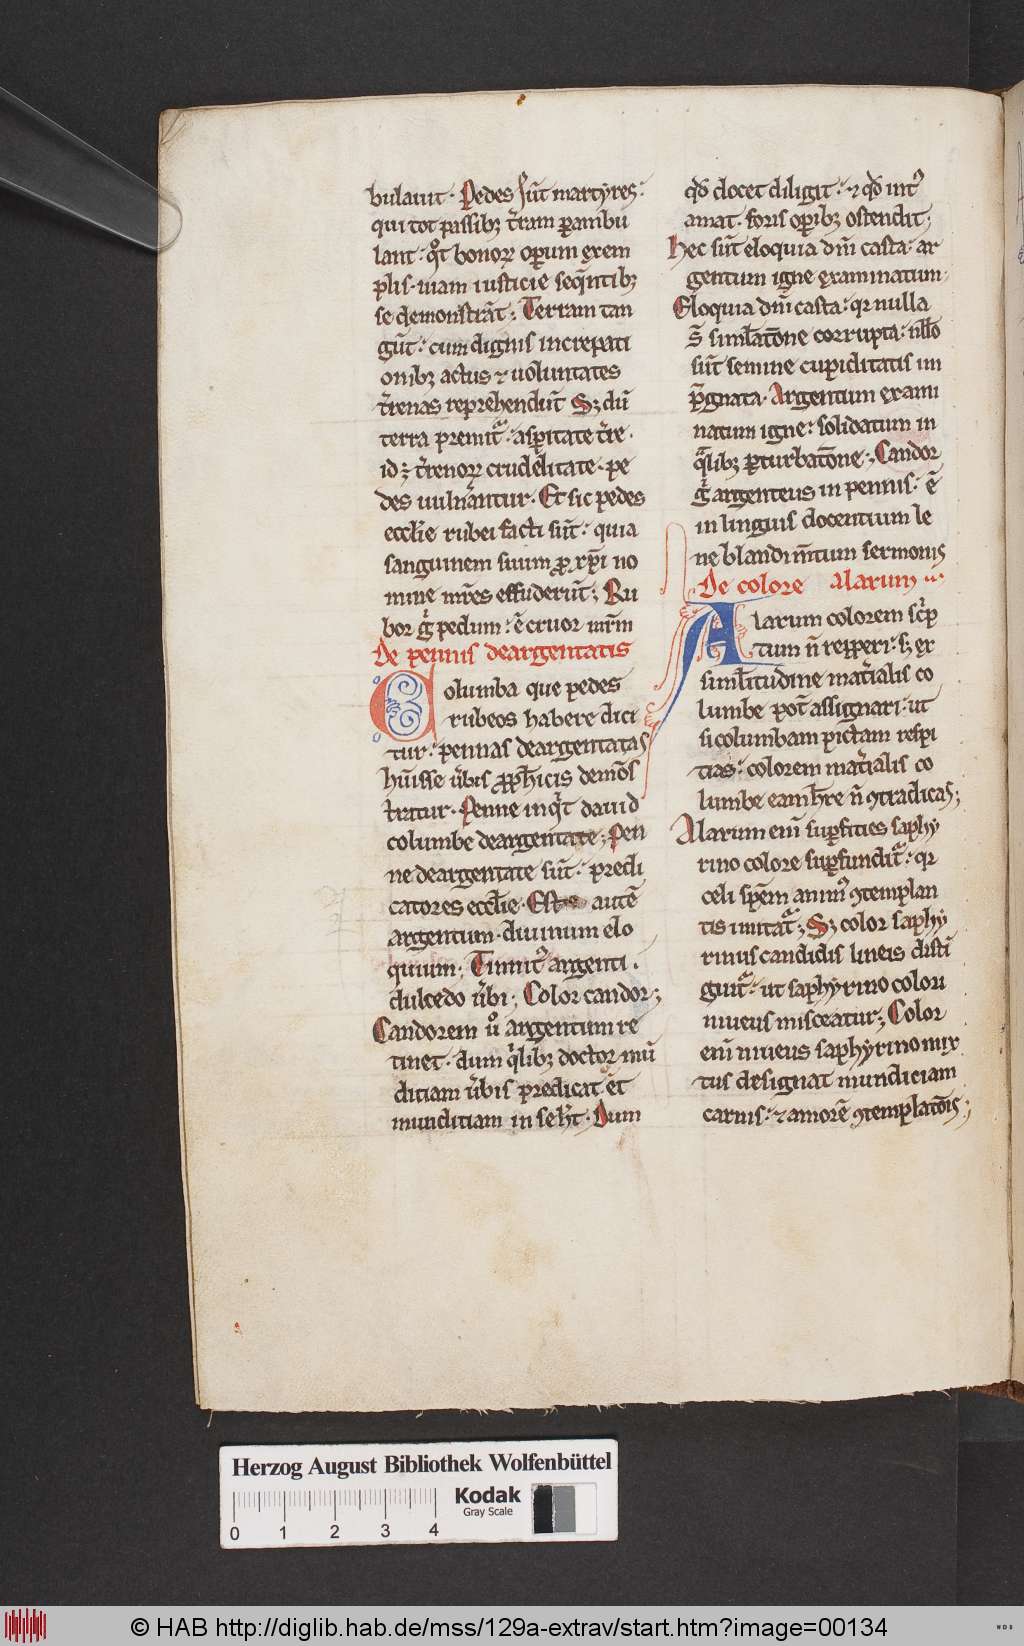 bulauit · Pedes st̄ martyres ·
qui tot passibꝫ t̄ram ꝑambu
lant : qͦt bonoꝝ oꝑum exem
plis · uiam iusticie seqn̄tibꝫ
se demonstrāt ; Terram tan
gūt : cum dignis increpati
onibꝫ actus ⁊ uoluntates
t̄renas reprehendūt Sꝫ dū
terra premit᷑ : asꝑitate t̄re ·
id ꝫ t̄renoꝝ crudelitate · pe
des uulnerantur · Et sic pedes
ecclie rubei facti sūt : quia
sanguinem suum ꝓ xp̄i no
mine mr̄es effuderūt ; Ru
bor gͥ pedum : ē cruor mr̄m
De pennis deargentatis
Columba que pedes
rubeos habere dici
tur : pennas deargentatas
huisse ūbis ꝓph̄icis demōs
tratur · Penne inqͥt dauid
columbe deargentate ; Pen
ne deargentate sūt : predi
catores ecclie · Est autē
argentum · diuinum elo
quium ; Tinnitꝰ argenti ·
dulcedo ūbi ; Color candor ;
Candorem uͦ argentum re
tinet · dum qͥlibꝫ doctor mū
ditiam ūbis predicat et
munditiam in se hꝫt · Dum
qd̄ docet diligit : ⁊ qd̄ intꝰ
amat · foris oꝑibꝫ ostendit ·
Hec sūt eloquia dn̄i casta · ar
gentum igne examinatum ·
Eloquia dn̄i casta : qr nulla
s̄ simlatōne corrupta : nllo
sūt semine cupiditatis im
p̄gnata · Argentum exami
natum igne : solidatum in
qͣlibꝫ ꝑturbatōne ; Candor
gͥ argenteus in pennis : ē
in linguis docentium le
ne blandim̄tum sermonis
De colore alarum ···
Alarum colorem sc̄p
tum n̄ repperi : sꝫ ex
simlitudine mat̄ialis co
lumbe pot̄ assignari · ut
si columbam pictam respi
cias : colorem mat̄ialis co
lumbe eam h̄re n̄ ꝯtradicas ;
Alarum enī suꝑficies saphy
rino colore suꝑfundit᷑ : qr
celi spēm animꝰ ꝯtemplan
tis imitat᷑ ; Sꝫ color saphy
rinus candidis lineis disti
guit᷑ : ut saphyrino colori
niueus misceatur ; Color
enī niueus saphyrino mix
tus designat mundiciam
carnis : ⁊ amorē ꝯtemplatōis ;
Herzog August Bibliothek Wolfenbüttel
Kodak
Gray Scale
0 1 2 3 4
© HAB http://diglib.hab.de/mss/129a-extrav/start.htm?image=00134